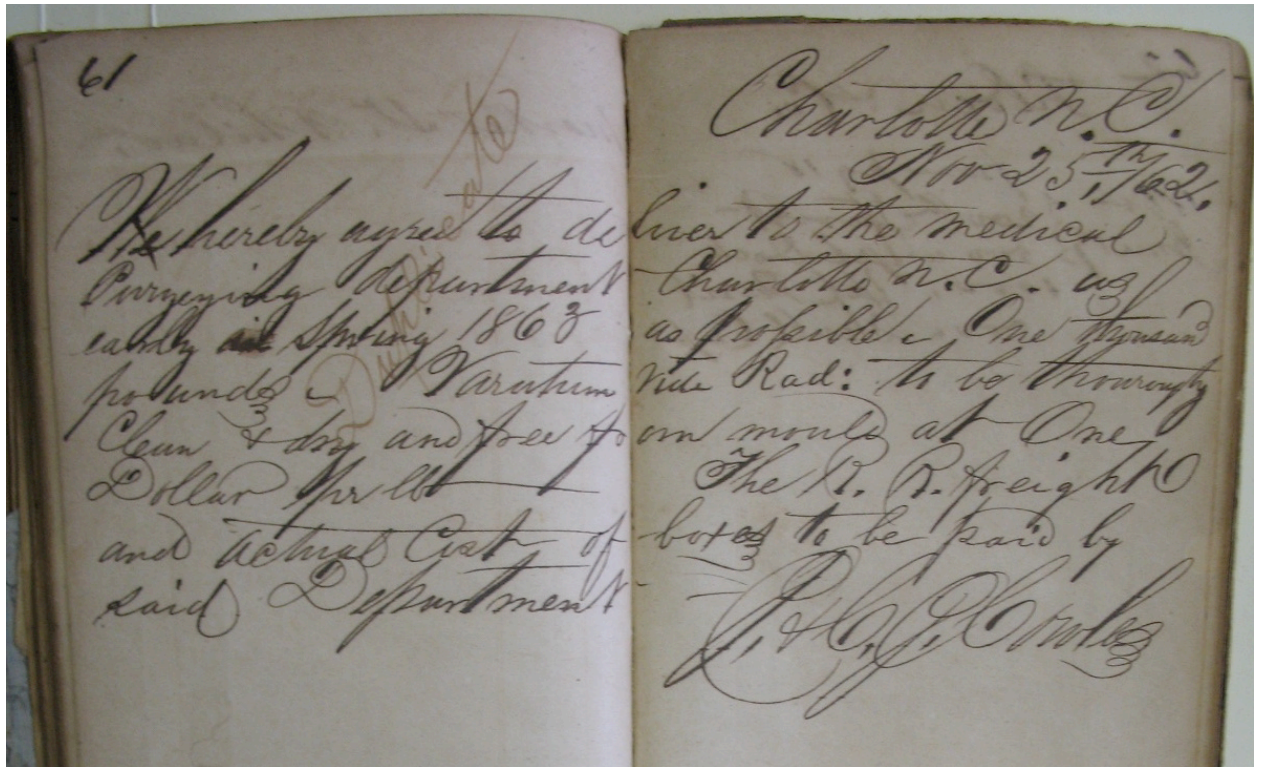 61
Charlotte N.C.
Nov 25th/62.
Duplicate
We hereby agree to deliver to the medical
Purveying department Charlotte N.C. as
early in Spring 1863 as possible. One thousand
pounds Varatrum Vide Rad: to be thouroughly
Clean & dry and free from mould at One
Dollar pr lb The R. R. freight
and actual Cost of boxes to be paid by
said Department
J. & C. J. Cowles